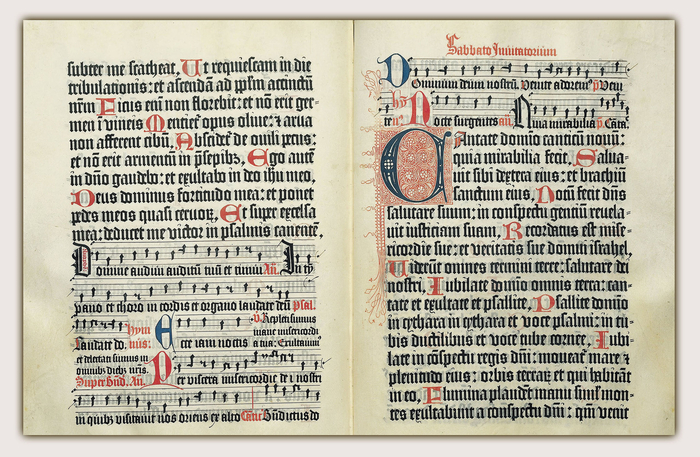 subter me scatheat, Ut requiescam in die
tribulationis: et ascendā ad pplm accinctū
nrm̄ Ficus em̄ non florebit: et nō erit ger=
men ī vineis Mentiet̄ opus oliue: & arua
non afferent cibū, Abscidet̄ de ouili pecus:
et nō erit armentū in p̄sepibꝫ, Ego autē
in dño gaudebo: et exultabo in deo ihu meo,
Deus dominus fortitudo mea: et ponet
pedes meos quasi ceruoꝝ, Et super excelsa
mea: deducet me victor in psalmis canentē,
Domine audiui auditū tuū et timui An. In tȳ
pano et choro in cordis et organo laudate deū Psal.
hym V. Repleti sumus
Laudate do. nus: Ecce iam noctis mane misericordi
a tua: Exultauim⁹
et delectati sumus in
omnibꝫ diebꝫ nr̄is.
Super Bñd. An. Per viscera misericordie dei nostri
in quibꝫ visitauit nos oriens ex alto Cantic Bñdictus dō
Sabbato Inuitatorium
Dominum deum nostrū. Venite adorem⁹ p̄ Veni
te: hȳ Nocte surgentes an̄. Quia mirabilia p̄ Cāta.
Cantate domino canticū nouū:
quia mirabilia fecit, Salua=
uit sibi dextera eius: et brachiū
sanctum eius, Notū fecit dn̄s
salutare suum: in conspectu gentiū reuela=
uit iusticiam suam, Recordatus est mise=
ricordie sue: et veritatis sue domui israhel,
Viderūt omnes termini terre: salutare dei
nostri, Iubilate domino omnis terra: can=
tate et exultate et psallite, Psallite domīo
in cythara in cythara et voce psalmi: in tu=
bis ductilibus et voce tube cornee, Iubi=
late in cōspectu regis dn̄i: moueat̄ mare &
plenitudo eius: orbis terraꝝ et qui habitāt
in eo, Flumina plaudēt manu simł mon=
tes exultabūt a conspectu dn̄i: qm̄ venit